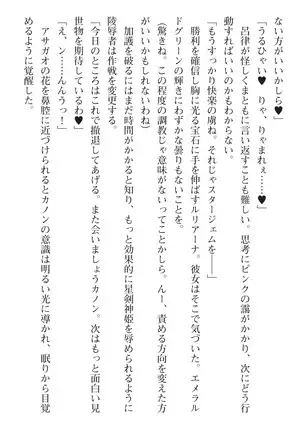 ない方がいいかしら♥」
「うるひゃい♥ りゃ、りゃまれぇ……♥」
呂律が怪しくまともに言い返すことも難しい。思考にピンクの靄がかかり、次にどう行
動すればいいのかもわからない。
「もうすっかり快楽の虜ね。それじゃスタージェムを――」
勝利を確信し胸に光る宝石に手を伸ばすルリアーナ。彼女はそこで気づいた。エメラル
ドグリーンの輝きにわずかな曇りもないことを。
（驚きね。この程度の調教じゃ意味がないってことかしら。んー、責める方向を変えた方
がいいかもしれないわね）
加護を破るにはまだ時間がかかると知り、もっと効果的に星剣神姫を辱められるように
陵辱者は作戦を変更する。
「今日のところはこれで撤退してあげる。また会いましょうカノン。次はもっと面白い見
世物を期待しているわ♥」
「え、ン……んんうっ！」
アサガオの花を鼻腔に近づけられるとカノンの意識は明るい光に導かれ、眠りから目覚
めるように覚醒した。